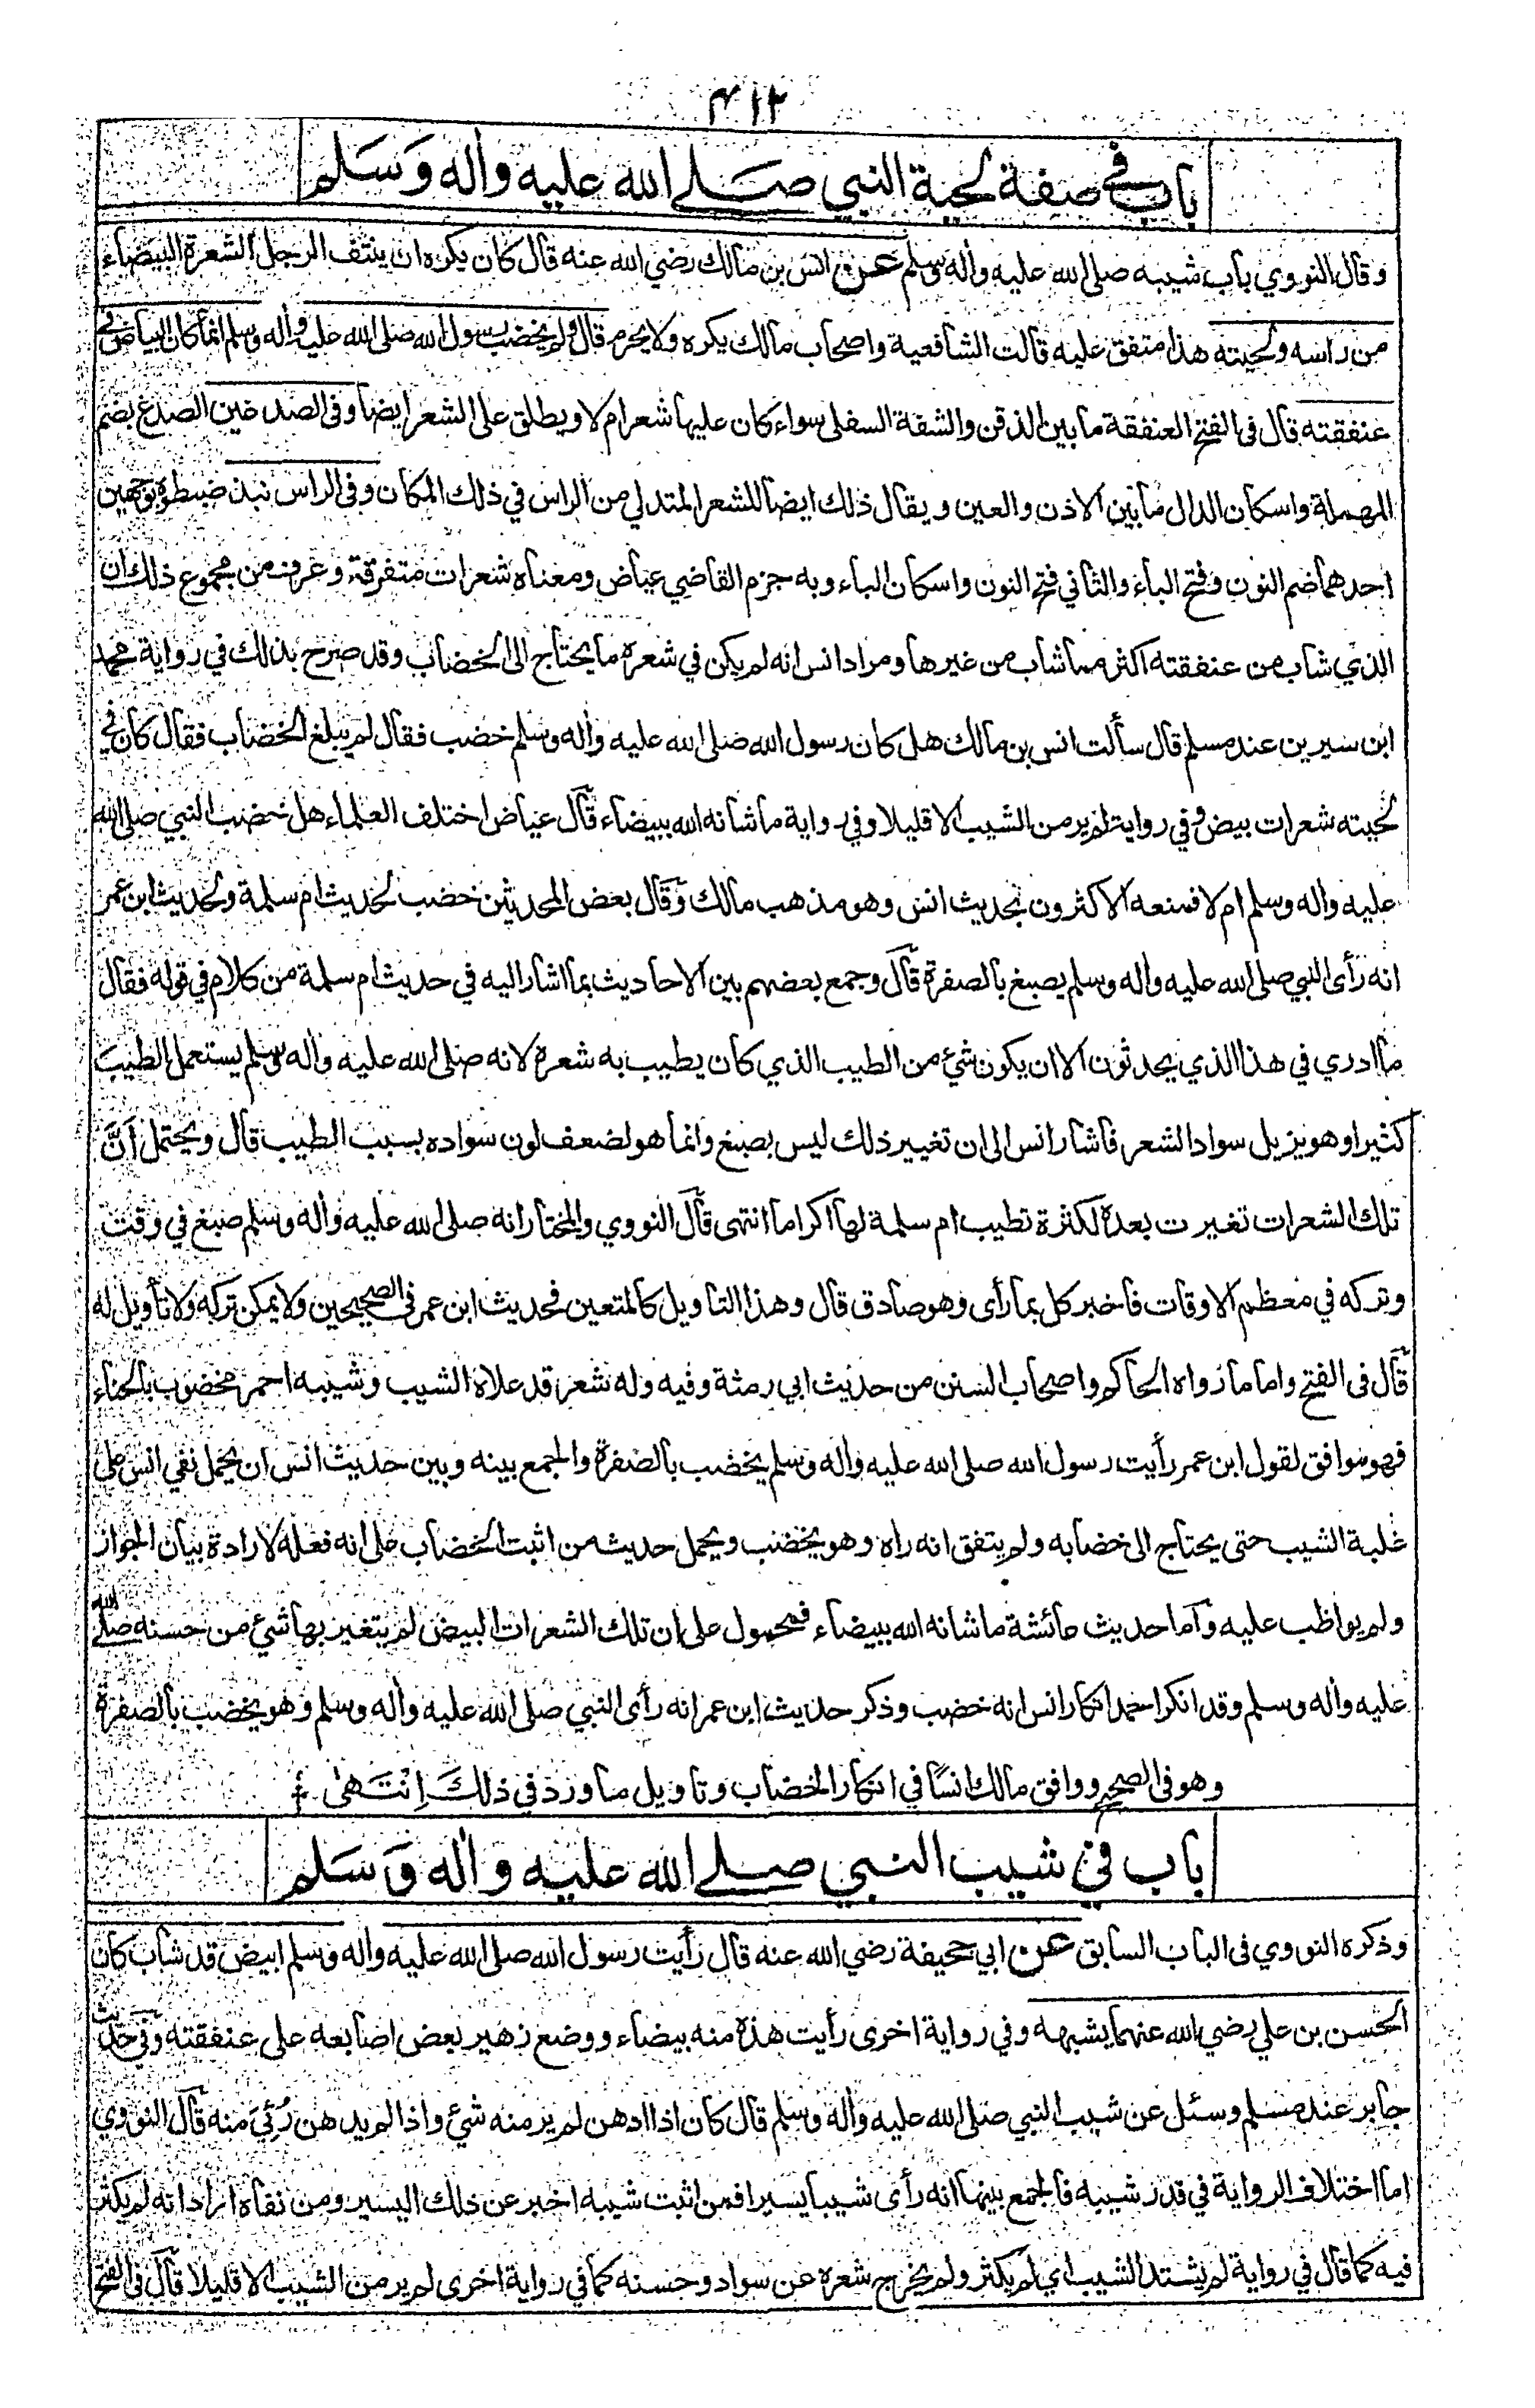 ٤١٢
باب في صفة لحية النبي صلے الله عليه واٰله وَسَلم
وقال النووي باب شيبه صلى الله عليه واٰله وسلم عن انس بن مالك رضي الله عنه قال كان يكره ان ينتف الرجل الشعرة البيضاء
من راسه ولحيته هذا متفق عليه قالت الشافعية واصحاب مالك يكره ولا يحرم قال ولم يخضب رسول الله صلى الله عليه واٰله وسلم انما كان البياض في
عنفقته قال فى الفتح العنفقة ما بين الذقن والشفة السفلى سواء كان عليها شعر ام لا ويطلق على الشعر ايضا وفى الصدغين الصدغ بضم
المهملة واسكان الدال ما بين الاذن والعين ويقال ذلك ايضا للشعر المتدلي من الراس في ذلك المكان وفى الراس نبذ ضبطوه بوجهين
احدهما ضم النون وفتح الباء والثاني فتح النون واسكان الباء وبه جزم القاضي عياض ومعناه شعرات متفرقة وعرف من مجموع ذلك ان
الذي شاب من عنفقته اكثر مما شاب من غيرها ومراد انس انه لم يكن في شعره ما يحتاج الى الخضاب وقد صرح بذلك في رواية محمد
ابن سيرين عند مسلم قال سألت انس بن مالك هل كان رسول الله صلى الله عليه واٰله وسلم خضب فقال لم يبلغ الخضاب فقال كان في
لحيته شعرات بيض وفي رواية لم ير من الشيب الا قليلا وفي رواية ما شانه الله ببيضاء قال عياض اختلف العلماء هل خضب النبي صلى الله
عليه واٰله وسلم ام لا فمنعه الاكثرون بحديث انس وهو مذهب مالك وقال بعض المحدثين خضب لحديث ام سلمة ولحديث ابن عمر
انه رأى النبي صلى الله عليه واٰله وسلم يصبغ بالصفرة قال وجمع بعضهم بين الاحاديث بما اشار اليه في حديث ام سلمة من كلام في قوله فقال
ما ادري في هذا الذي يحدثون الا ان يكون شيء من الطيب الذي كان يطيب به شعره لانه صلى الله عليه واٰله وسلم يستعمل الطيب
كثيرا وهو يزيل سواد الشعر فاشار انس الى ان تغيير ذلك ليس بصبغ وانما هو لضعف لون سواده بسبب الطيب قال ويحتمل اَنَّ
تلك الشعرات تغيرت بعده لكثرة تطيب ام سلمة لها اكراما انتهى قال النووي والمختار انه صلى الله عليه واٰله وسلم صبغ في وقت
وتركه في معظم الاوقات فاخبر كل بما رأى وهو صادق قال وهذا التاويل كالمتعين فحديث ابن عمر فى الصحيحين ولا يمكن تركه ولا تأويل له
قال فى الفتح واما ما رواه الحاكم واصحاب السنن من حديث ابي رمثة وفيه وله شعر قد علاه الشيب وشيبه احمر مخضوب بالحناء
فهو موافق لقول ابن عمر رأيت رسول الله صلى الله عليه واٰله وسلم يخضب بالصفرة والجمع بينه وبين حديث انس ان يحمل نفي انس على
غلبة الشيب حتى يحتاج الى خضابه ولم يتفق انه راه وهو يخضب ويحمل حديث من اثبت الخضاب على انه فعله لارادة بيان الجواز
ولم يواظب عليه واما حديث عائشة ما شانه الله ببيضاء فمحمول على ان تلك الشعرات البيض لم يتغير بها شيء من حسنه صلى الله
عليه واٰله وسلم وقد انكر احمد انكار انس انه خضب وذكر حديث ابن عمر انه رأى النبي صلى الله عليه واٰله وسلم وهو يخضب بالصفرة
وهو فى الصحيح ووافق مالك انسًا في انكار الخضاب وتاويل ما ورد في ذلكَ اِنْتَهىٰ
باب في شيب النبي صلے الله عليه واٰله وَسَلم
وذكره النووي فى الباب السابق عن ابي جحيفة رضي الله عنه قال رأيت رسول الله صلى الله عليه واٰله وسلم ابيض قد شاب كان
الحسن بن علي رضي الله عنهما يشبهه وفي رواية اخرى رأيت هذه منه بيضاء ووضع زهير بعض اصابعه على عنفقته وفي حديث
جابر عند مسلم وسئل عن شيب النبي صلى الله عليه واٰله وسلم قال كان اذا ادهن لم ير منه شيء واذا لم يدهن رُئِيَ منه قال النووي
اما اختلاف الرواية في قدر شيبه فالجمع بينها انه رأى شيبا يسيرا فمن اثبت شيبه اخبر عن ذلك اليسير ومن نفاه اراد انه لم يكثر
فيه كما قال في رواية لم يشتد الشيب اي لم يكثر ولم يخرج شعره عن سواد وحسنه كما في رواية اخرى لم ير من الشيب الا قليلا قال فى الفتح